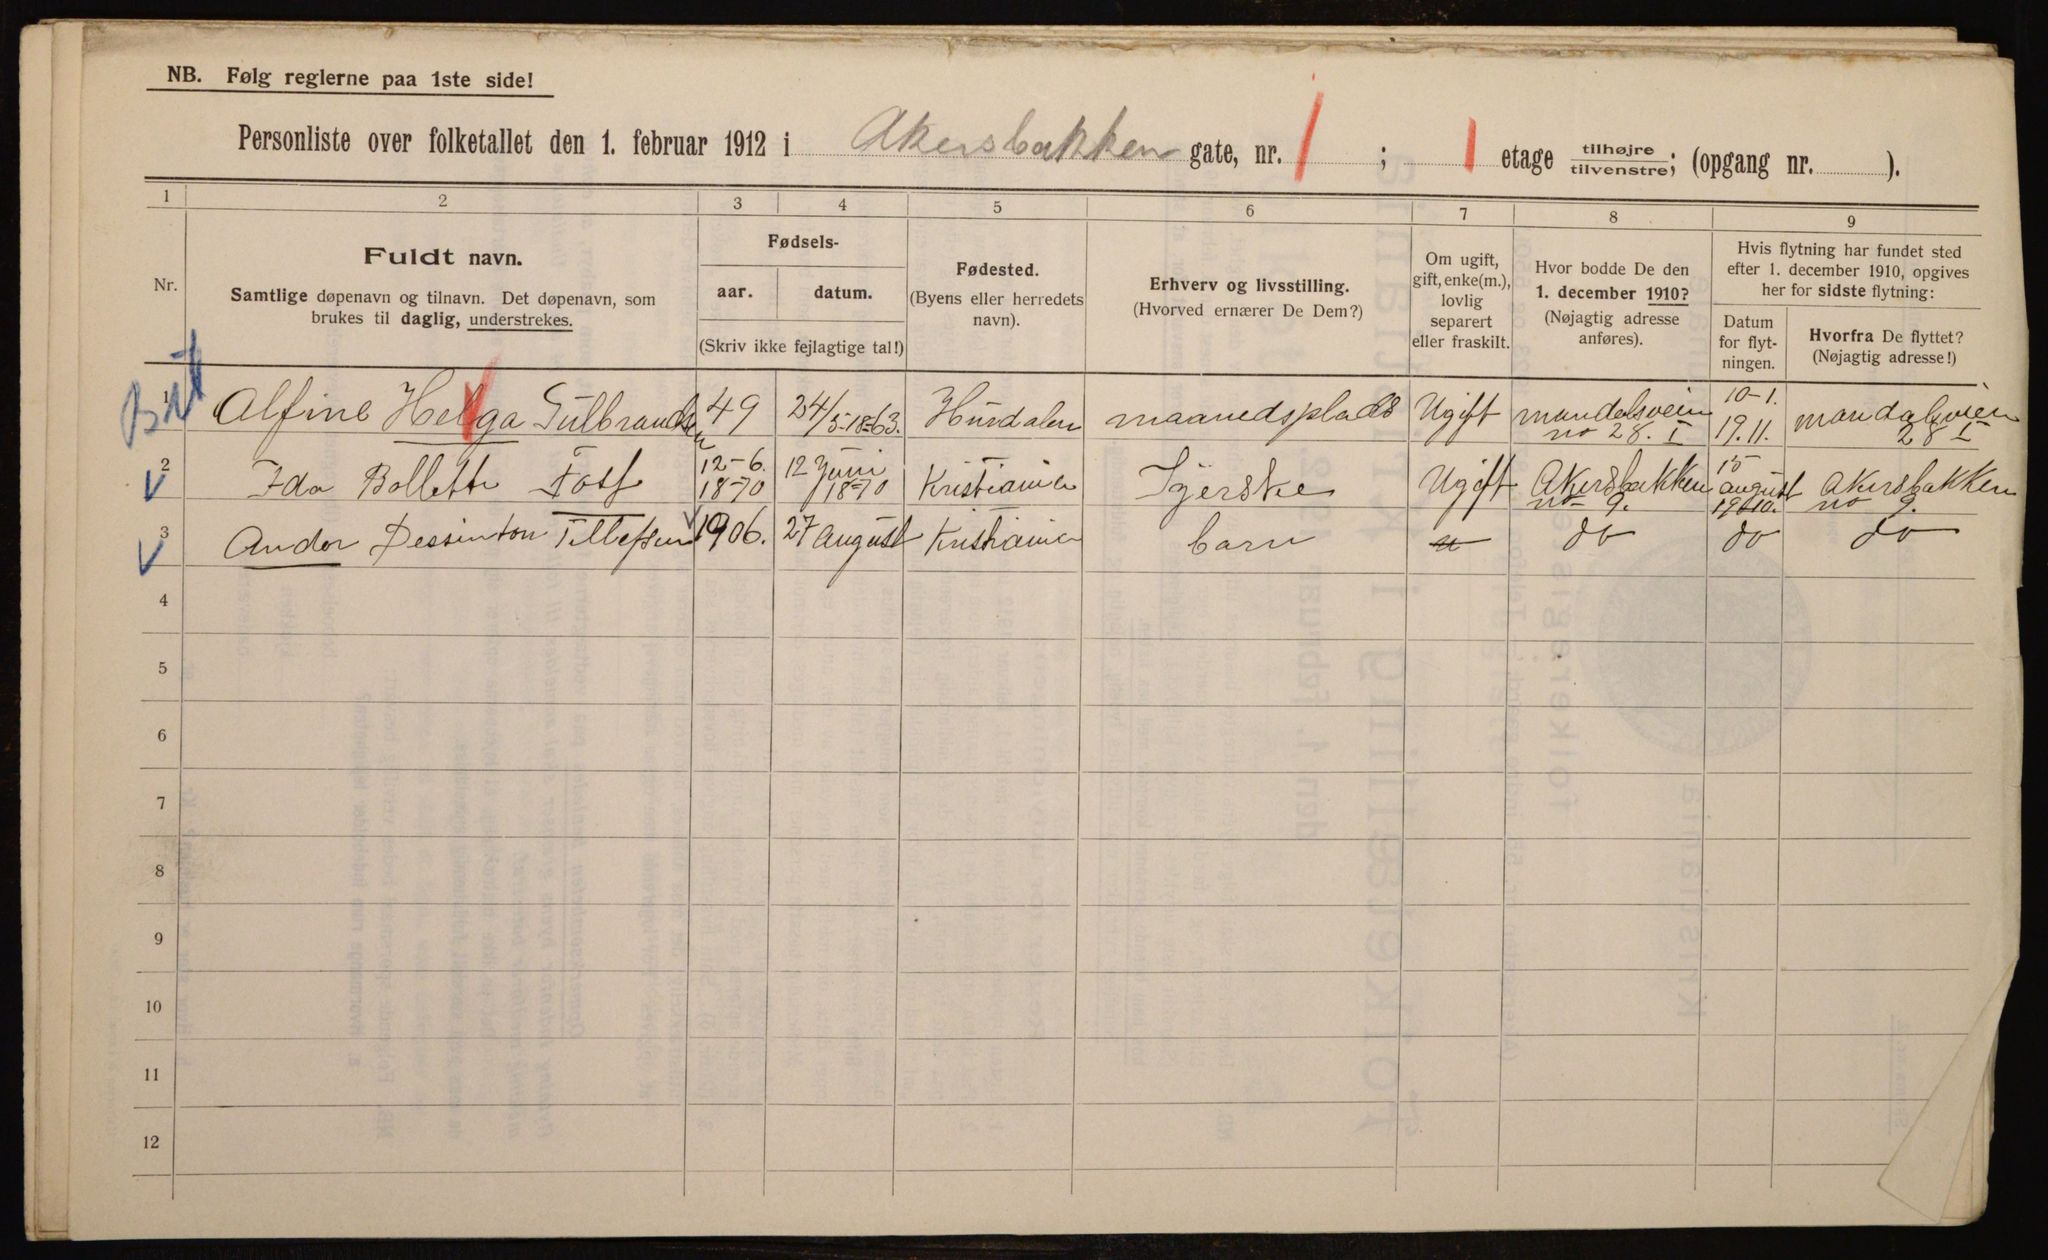 NB. Følg reglerne paa 1ste side!
Personliste over folketallet den 1. februar 1912 i Akersbakken gate, nr. 1 ; 1 etage tilhøjre/tilvenstre; (opgang nr. ).
1 2 3 4 5 6 7 8 9
Nr.
Fuldt navn.
Samtlige døpenavn og tilnavn. Det døpenavn, som
brukes til daglig, understrekes.
Fødsels-
aar. datum.
(Skriv ikke fejlagtige tal!)
Fødested.
(Byens eller herredets
navn).
Erhverv og livsstilling.
(Hvorved ernærer De Dem?)
Om ugift,
gift, enke(m.),
lovlig
separert
eller fraskilt.
Hvor bodde De den
1. december 1910?
(Nøjagtig adresse
anføres).
Hvis flytning har fundet sted
efter 1. december 1910, opgives
her for sidste flytning:
Datum
for flyt-
ningen.
Hvorfra De flyttet?
(Nøjagtig adresse!)
1 Alfine Helga Gulbrandsen 49 24/5-1863. Hurdalen maanedsplads Ugift mandalsveien no 28. I 10-1. 19.11. mandalsveien 28 I
2 Ida Bollette Foss 12-6. 1870 12 Juni 1870 Kristiania Syerske Ugift Akersbakken no 9. 15 august 1910. Akersbakken no 9.
3 Andor Tellefsen 1906. 27 august Kristiania barn do do do
4
5
6
7
8
9
10
11
12